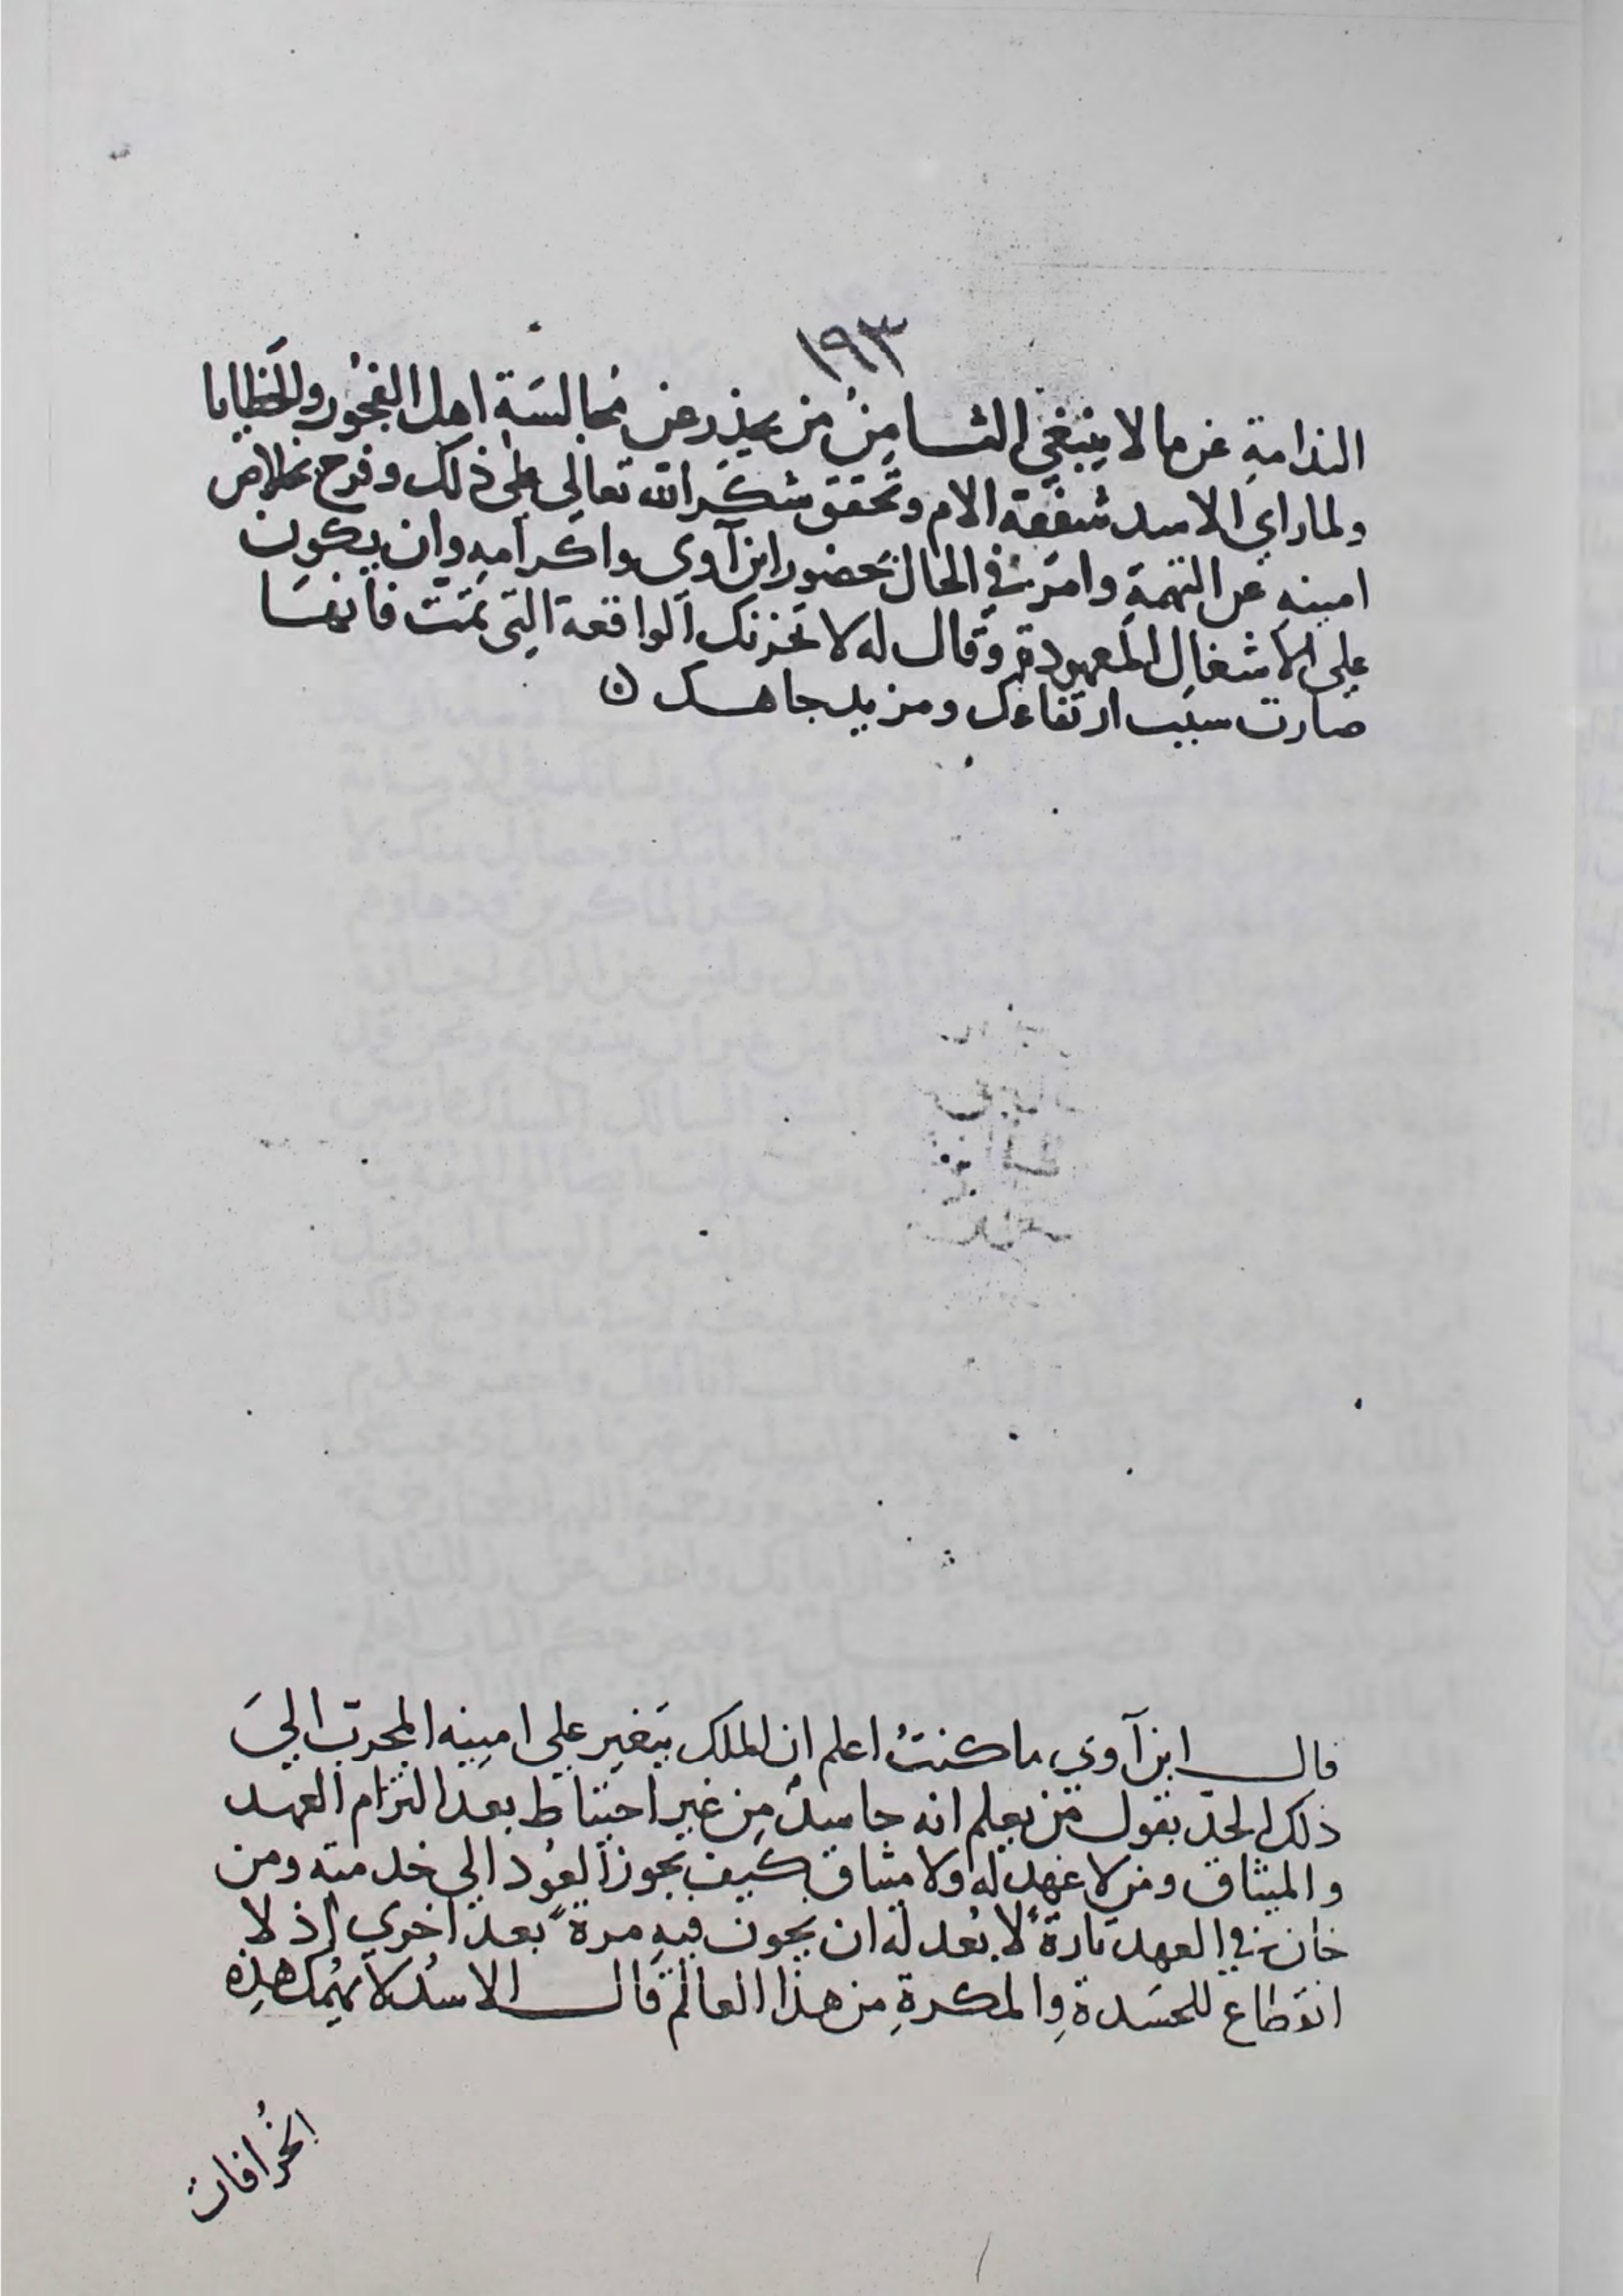 ١٩٣
الندامةِ عن ما لا ينبغي الثامنُ من يحذر عن مُجالسَة اهل الفجُور والخَطايا
ولما راي الاسد شفقة الام وتحقق شكَر الله تعالي علي ذلك وفرح بخلاص
امينهِ عن التهمةِ وامرَ في الحال بحَضور ابن آوي واكرامهِ وان يكون
علي الاشغال المعهودة وقال له لا تحزنك الواقعة التِي تمَت فانهَا
صارت سبَب ارتفاعك ومزيد جاهك ن
قال ابن آوي ما كنتُ اعلم ان الملَك يتَغير علي امينِه المجرب اليَ
ذلك الحدّ بقول من يعلم انه حاسدٌ مِن غير احتياط بعد التزام العهد
والميثاق ومن لا عهد له ولا ميثاق كيف يجوز العَود الي خدمته ومن
خان في العهد تارةً لا بُعد له ان يخون فيهِ مرةً بعد اخري اذ لا
انقطاع للحسَدةِ والمكرةِ من هذا العالم قال الاسدُ لا يهُمك هذِه
الخُرافات